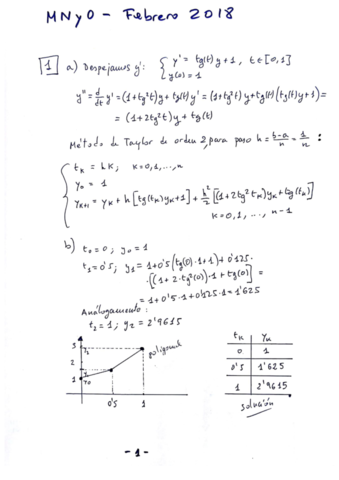 MNyO - Febrero 2018
1 a) Despejamos y': { y' = tg(t)y + 1, t∈[0,1]
y(0) = 1
y'' = d/dt y' = (1+tg²t)y + tg(t)y' = (1+tg²t)y + tg(t)(tg(t)y+1) =
= (1+2tg²t)y + tg(t)
Método de Taylor de orden 2, para paso h = b-a/n = 1/n :
{ tₖ = hk, k=0,1,...,n
y₀ = 1
yₖ₊₁ = yₖ + h[tg(tₖ)yₖ+1] + h²/2 [(1+2tg²tₖ)yₖ + tg(tₖ)]
k=0,1, ..., n-1
b) t₀=0; y₀=1
t₁=0'5; y₁=1+0'5(tg(0)·1+1)+0'125·
·[(1+2·tg²(0))·1+tg(0)] =
= 1+0'5·1+0'125·1=1'625
Análogamente:
t₂=1; y₂=2'9615
3 y₂
2
y₁
1 y₀
poligonal
0'5 1
tₖ yₖ
0 1
0'5 1'625
1 2'9615
solución
-1-